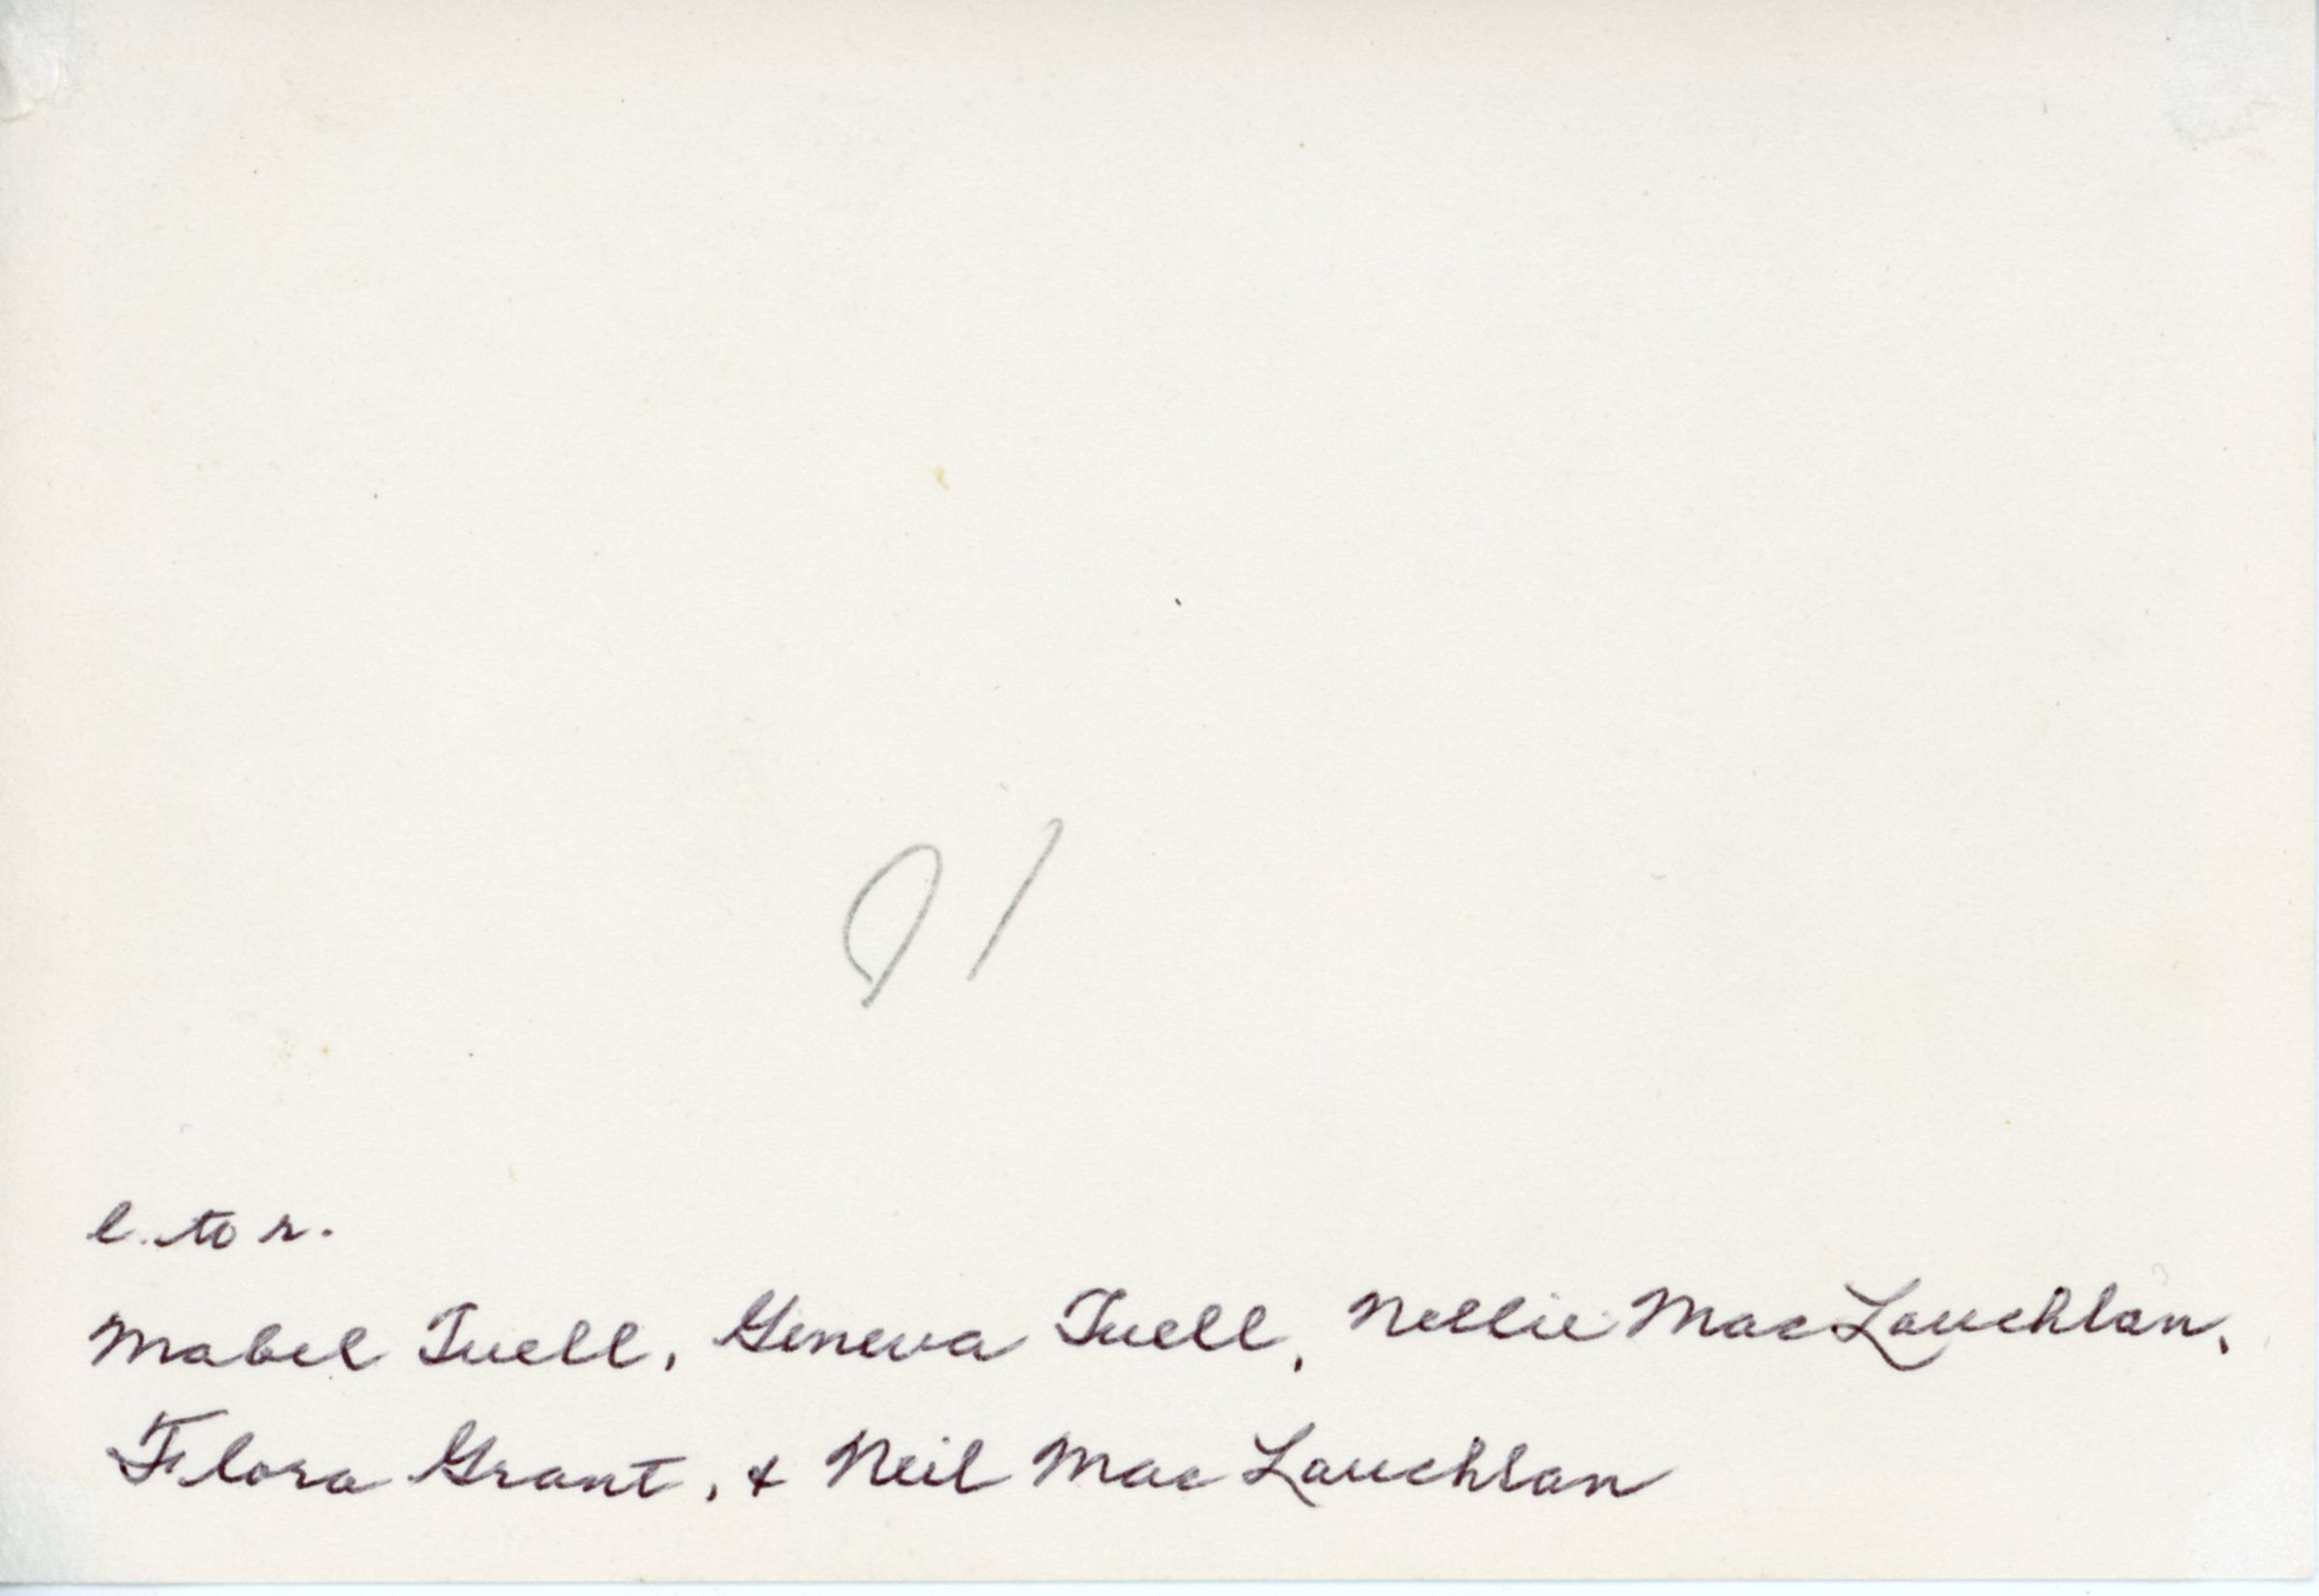 l. to r.
Mabel Tuell, Geneva Tuell, Nellie MacLauchlan,
Flora Grant, & Neil MacLauchlan